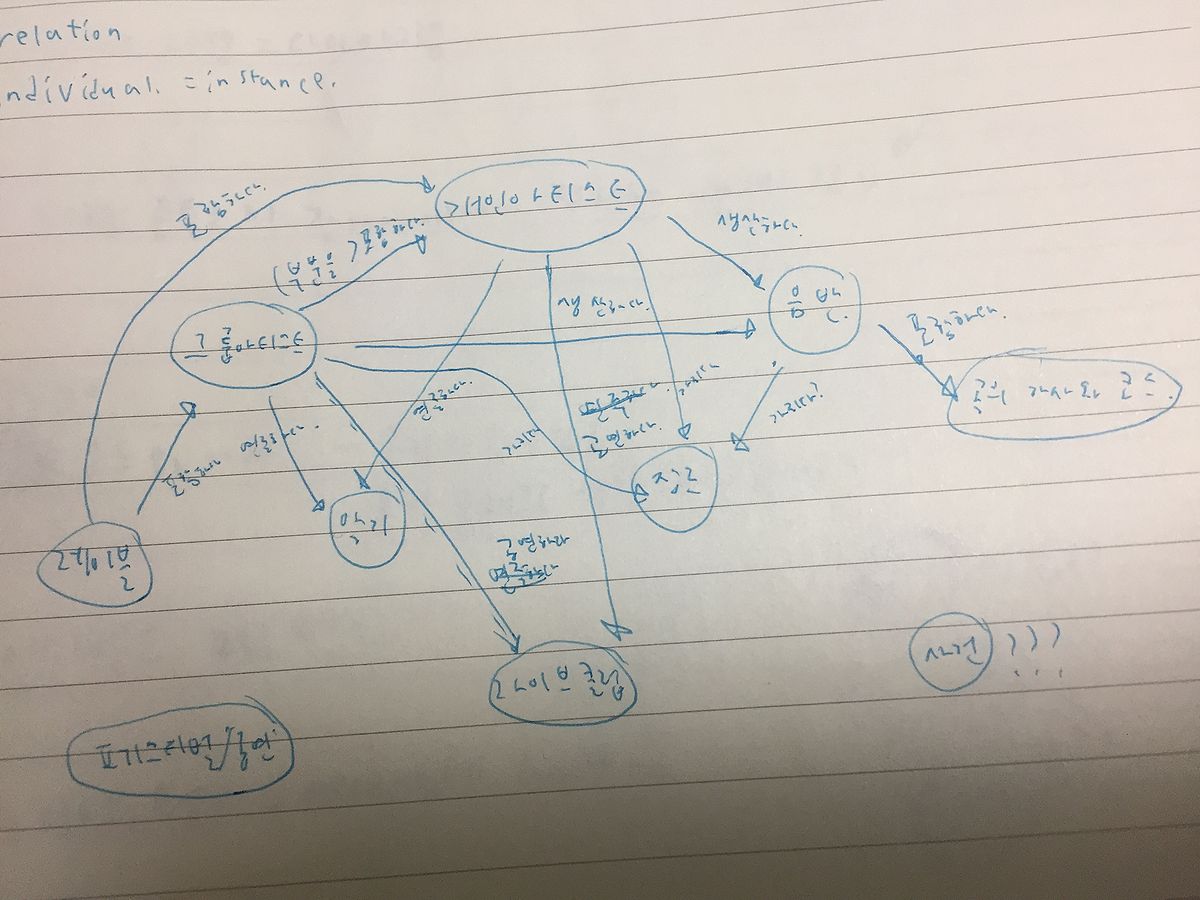 relation
individual. = instance.
포함하다.
개인아티스트
(부분을) 포함하다.
생산하다.
그룹아티스트
생산하다.
음반.
포함하다.
곡의 가사와 코드.
연주하다.
연주하다.
가지다
연주하다.
공연하다.
가지다
가지다?
포함하다
레이블
악기
장르
공연하다
연주하다
라이브클럽
사건 ???
페스티벌/공연